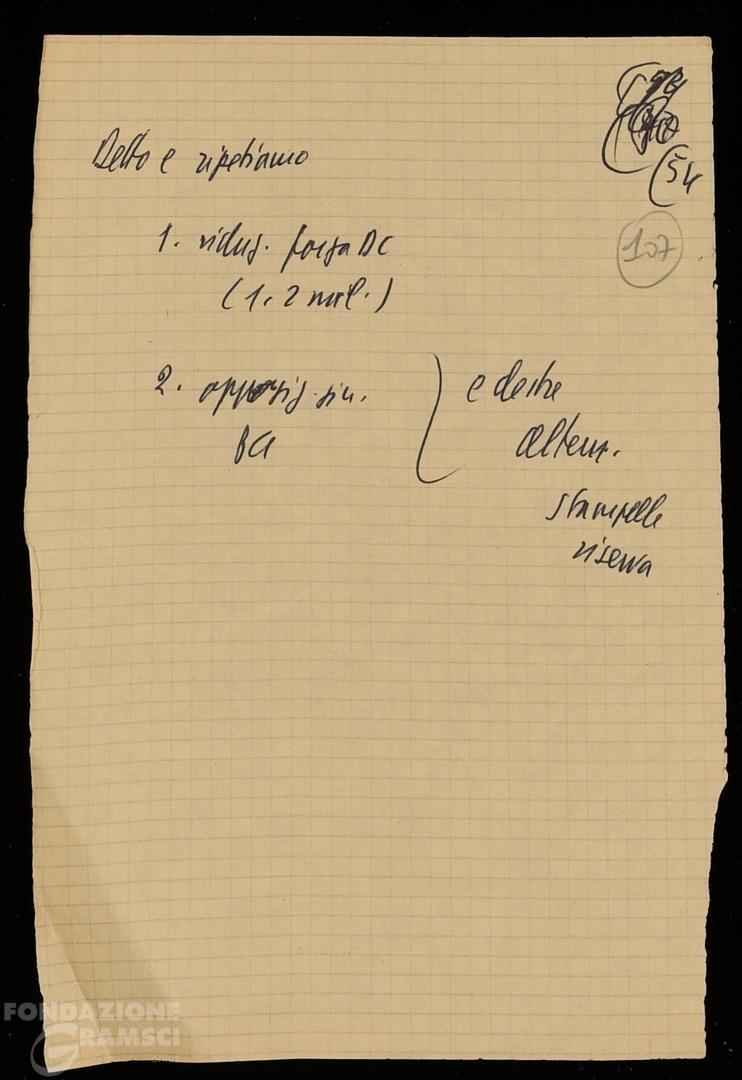 (54
107
Detto e ripetiamo
1. riduz. forza DC
(1.2 mil.)
2. opposiz. sin. } e destre
PCI altern.
stampelle
riserva
FONDAZIONE
GRAMSCI